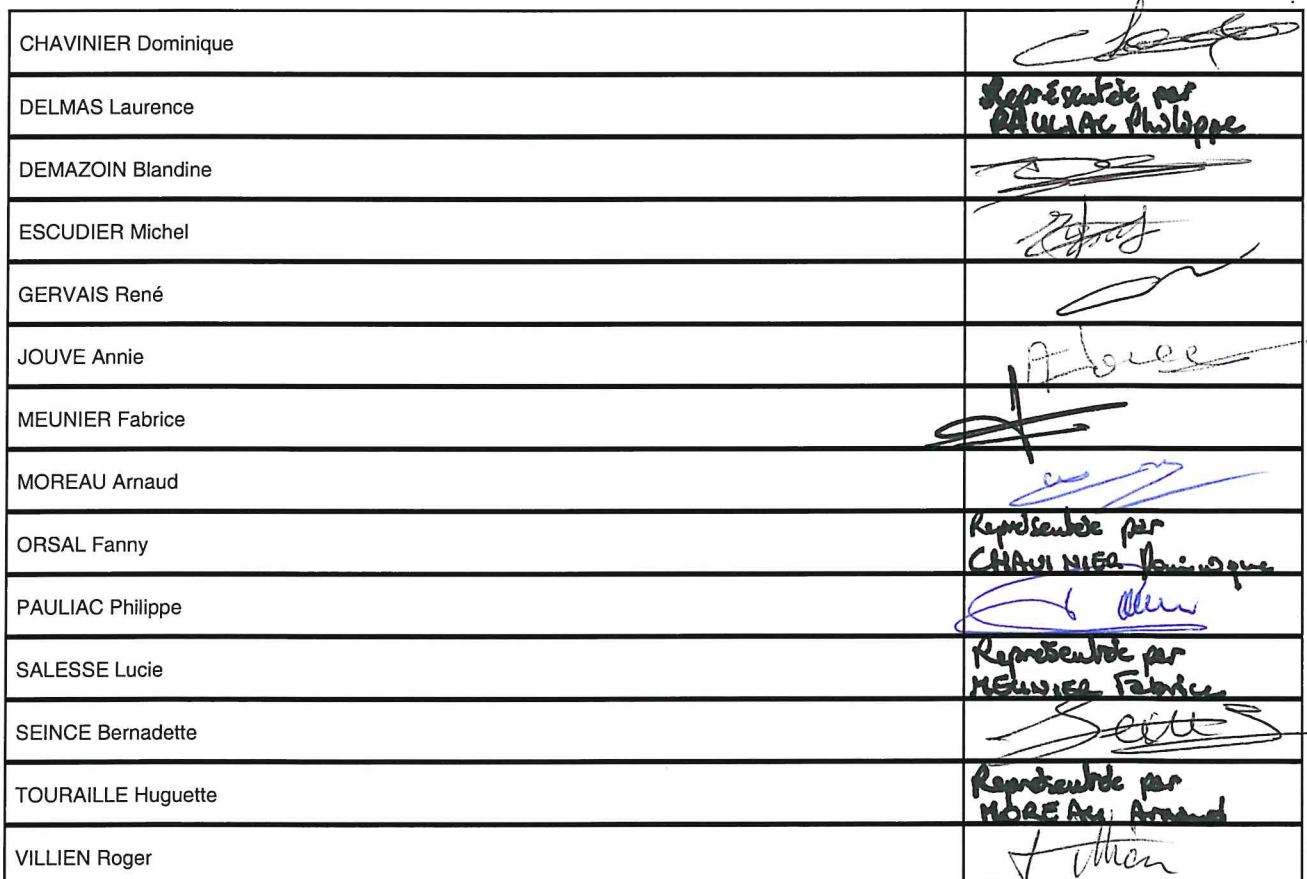 CHAVINIER Dominique
DELMAS Laurence
Représentée par
PAULIAC Philippe
DEMAZOIN Blandine
ESCUDIER Michel
GERVAIS René
JOUVE Annie
MEUNIER Fabrice
MOREAU Arnaud
ORSAL Fanny
Représentée par
CHAVINIER Dominique
PAULIAC Philippe
SALESSE Lucie
Représentée par
MEUNIER Fabrice
SEINCE Bernadette
TOURAILLE Huguette
Représentée par
MOREAU Arnaud
VILLIEN Roger